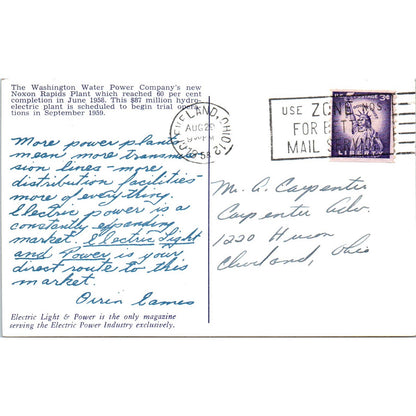 The Washington Water Power Company's new
Noxon Rapids Plant which reached 60 per cent
completion in June 1958. This $87 million hydro-
electric plant is scheduled to begin trial opera-
tions in September 1959.
More power plants
mean more transmis-
sion lines - more
distribution facilities -
more of everything.
Electric power is a
constantly expanding
market. Electric Light
and Power is your
direct route to this
market.
Orrin Eames
Electric Light & Power is the only magazine
serving the Electric Power Industry exclusively.
CLEVELAND, OHIO 12
AUG 29
1958
USE ZONE NOS.
FOR
MAIL
3¢
LIBERTY
Mr. A. Carpenter
Carpenter Adv.
1220 Huron
Cleveland, Ohio